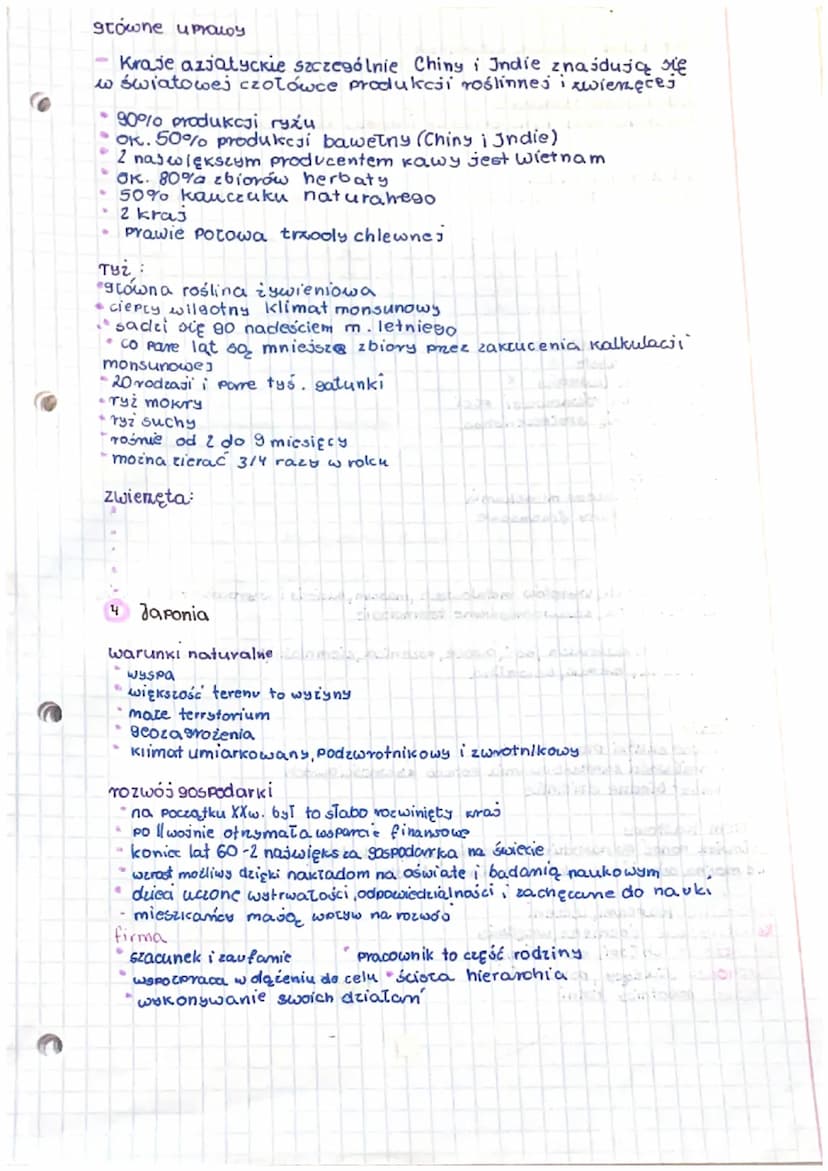 główne uprawy
- Kraje azjatyckie szczególnie Chiny i Indie znajdują się
w światowej czołówce produkcji roślinnej i zwierzęcej
• 90% produkcji ryżu
• ok. 50% produkcji bawełny (Chiny i Indie)
• 2 największym producentem kawy jest Wietnam
• ok. 80% zbiorów herbaty
• 50% kauczuku naturalnego
• 2 kraj
• prawie połowa trzody chlewnej
ryż :
• główna roślina żywieniowa
• ciepły wilgotny klimat monsunowy
• sadzi się po nadejściem m. letniego
• co pare lat są mniejsze zbiory przez zakłucenia kalkulacji
monsunowej
• 20 rodzaji i pare tyś. gatunki
• ryż mokry
• ryż suchy
• rośnie od 2 do 9 miesięcy
• można zierać 3/4 razy w roku
zwierzęta:
4 Japonia
warunki naturalne
• wyspa
• większość terenu to wyżyny
• małe terrytorium
• geozagrożenia
• klimat umiarkowany, podzwrotnikowy i zwrotnikowy
rozwój gospodarki
• na początku XXw. był to słabo rozwinięty kraj
• po II wojnie otrzymała wsparcie finansowe
• koniec lat 60 - 2 największa gospodarka na świecie
• wzrost możliwy dzięki nakładom na oświate i badanią naukowym
• dzieci uczone wytrwałości, odpowiedzialności i zachęcane do nauki
- mieszkańcy mają wpływ na rozwój
firma
• szacunek i zaufanie • pracownik to część rodziny
• wspołpraca w dążeniu do celu • ścisła hierarchia
• wykonywanie swoich działań